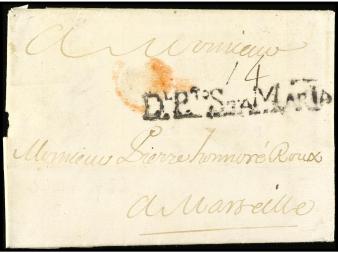 A Monsieur
14
D. Pto. Sta. MARIA
Monsieur Pierre honnoré Roux
a Marseille